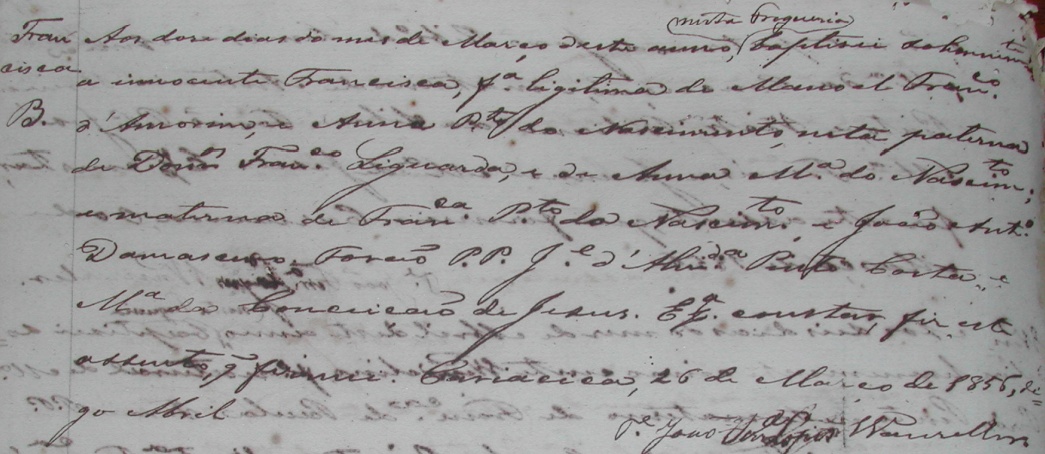 nesta Freguesia
Fran Aos dose dias do mes de Março deste anno, baptisei solemnem.te
cisca a innocente Francisca, f.a legitima de Manoel Fran.co
B. d'Amorim, e Anna P.to do Nascimento, neta paterna
de Dom.os Fran.co Liguarda, e de Anna M.a do Nascim.to;
e materna de Fran.ca P.to do Nascim.to e João Ant.o
Damasceno. Forão P.P. J.e d'Alm.da Pinto Costa e
M.a da Conceicão de Jesus. E p.a constar, fiz este
assento, q̃ firmei. Cariacica, 26 de Março de 1856, di=
go Abril
P.e João